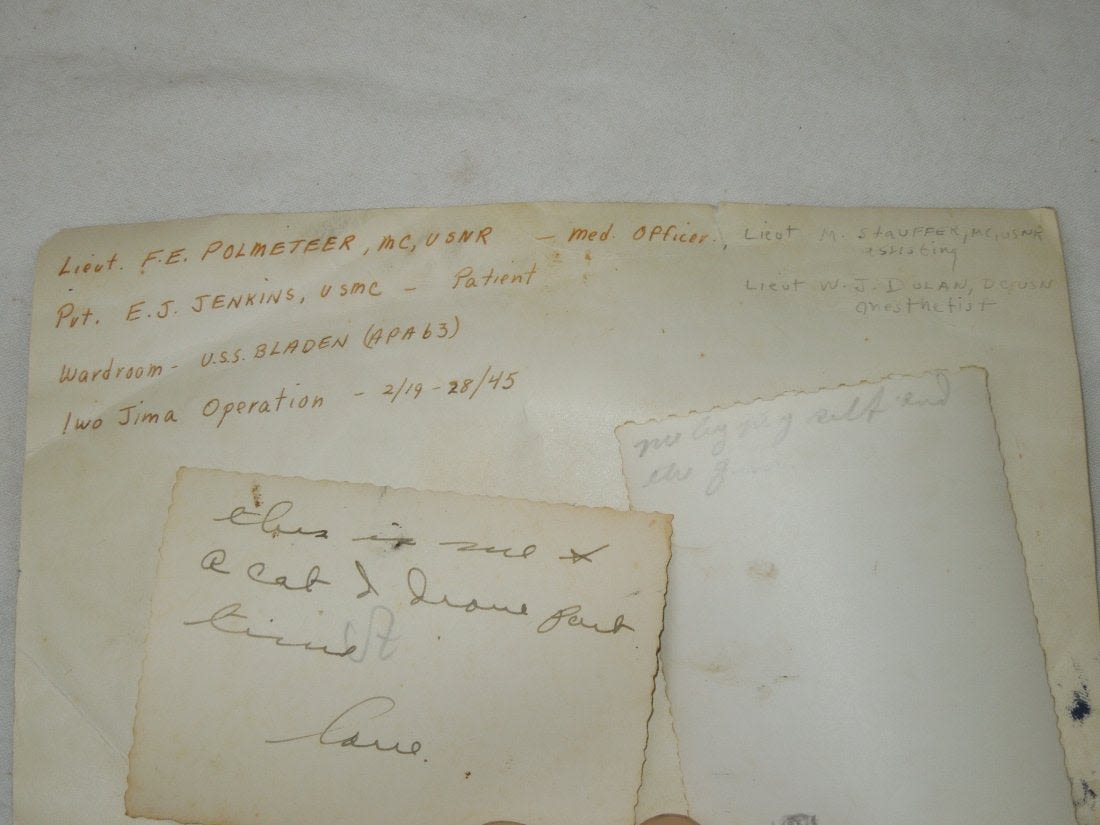 Lieut. F.E. POLMETEER, MC, USNR — Med. Officer., Lieut M. STAUFFER, MC, USNR
assisting
Pvt. E.J. JENKINS, USMC — Patient
Lieut W.J. DOLAN, DC, USN
anesthetist
Wardroom - U.S.S. BLADEN (APA63)
Iwo Jima Operation - 2/19-28/45
this is me &
a cat I drove part
time
Love.
self and
the